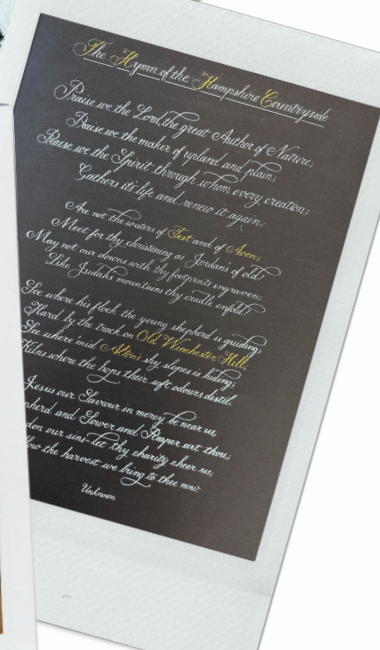 The Hymn of the Hampshire Countryside
Praise we the Lord, the great Author of Nature;
Praise we the maker of upland and plain;
Praise we the Spirit through whom every creation;
Gathers it's life and renew it again;
Are not the waters of Test and of Avon;
Meet for thy christening as Jordan's of old?
May not our downs with thy footprints engraven;
Like Judah's mountains thy cradle enfold?
See where his flock the young shepherd is guiding;
Hard by the track on Old Winchester Hill,
See where 'mid Alton's shy slopes is hiding;
Kilns where the hops their soft odours distil.
Jesus our Saviour in mercy be near us,
herd and Sower and Reaper art thou;
don our sins let thy charity cheer us;
low the harvest we bring to thee now.
Unknown